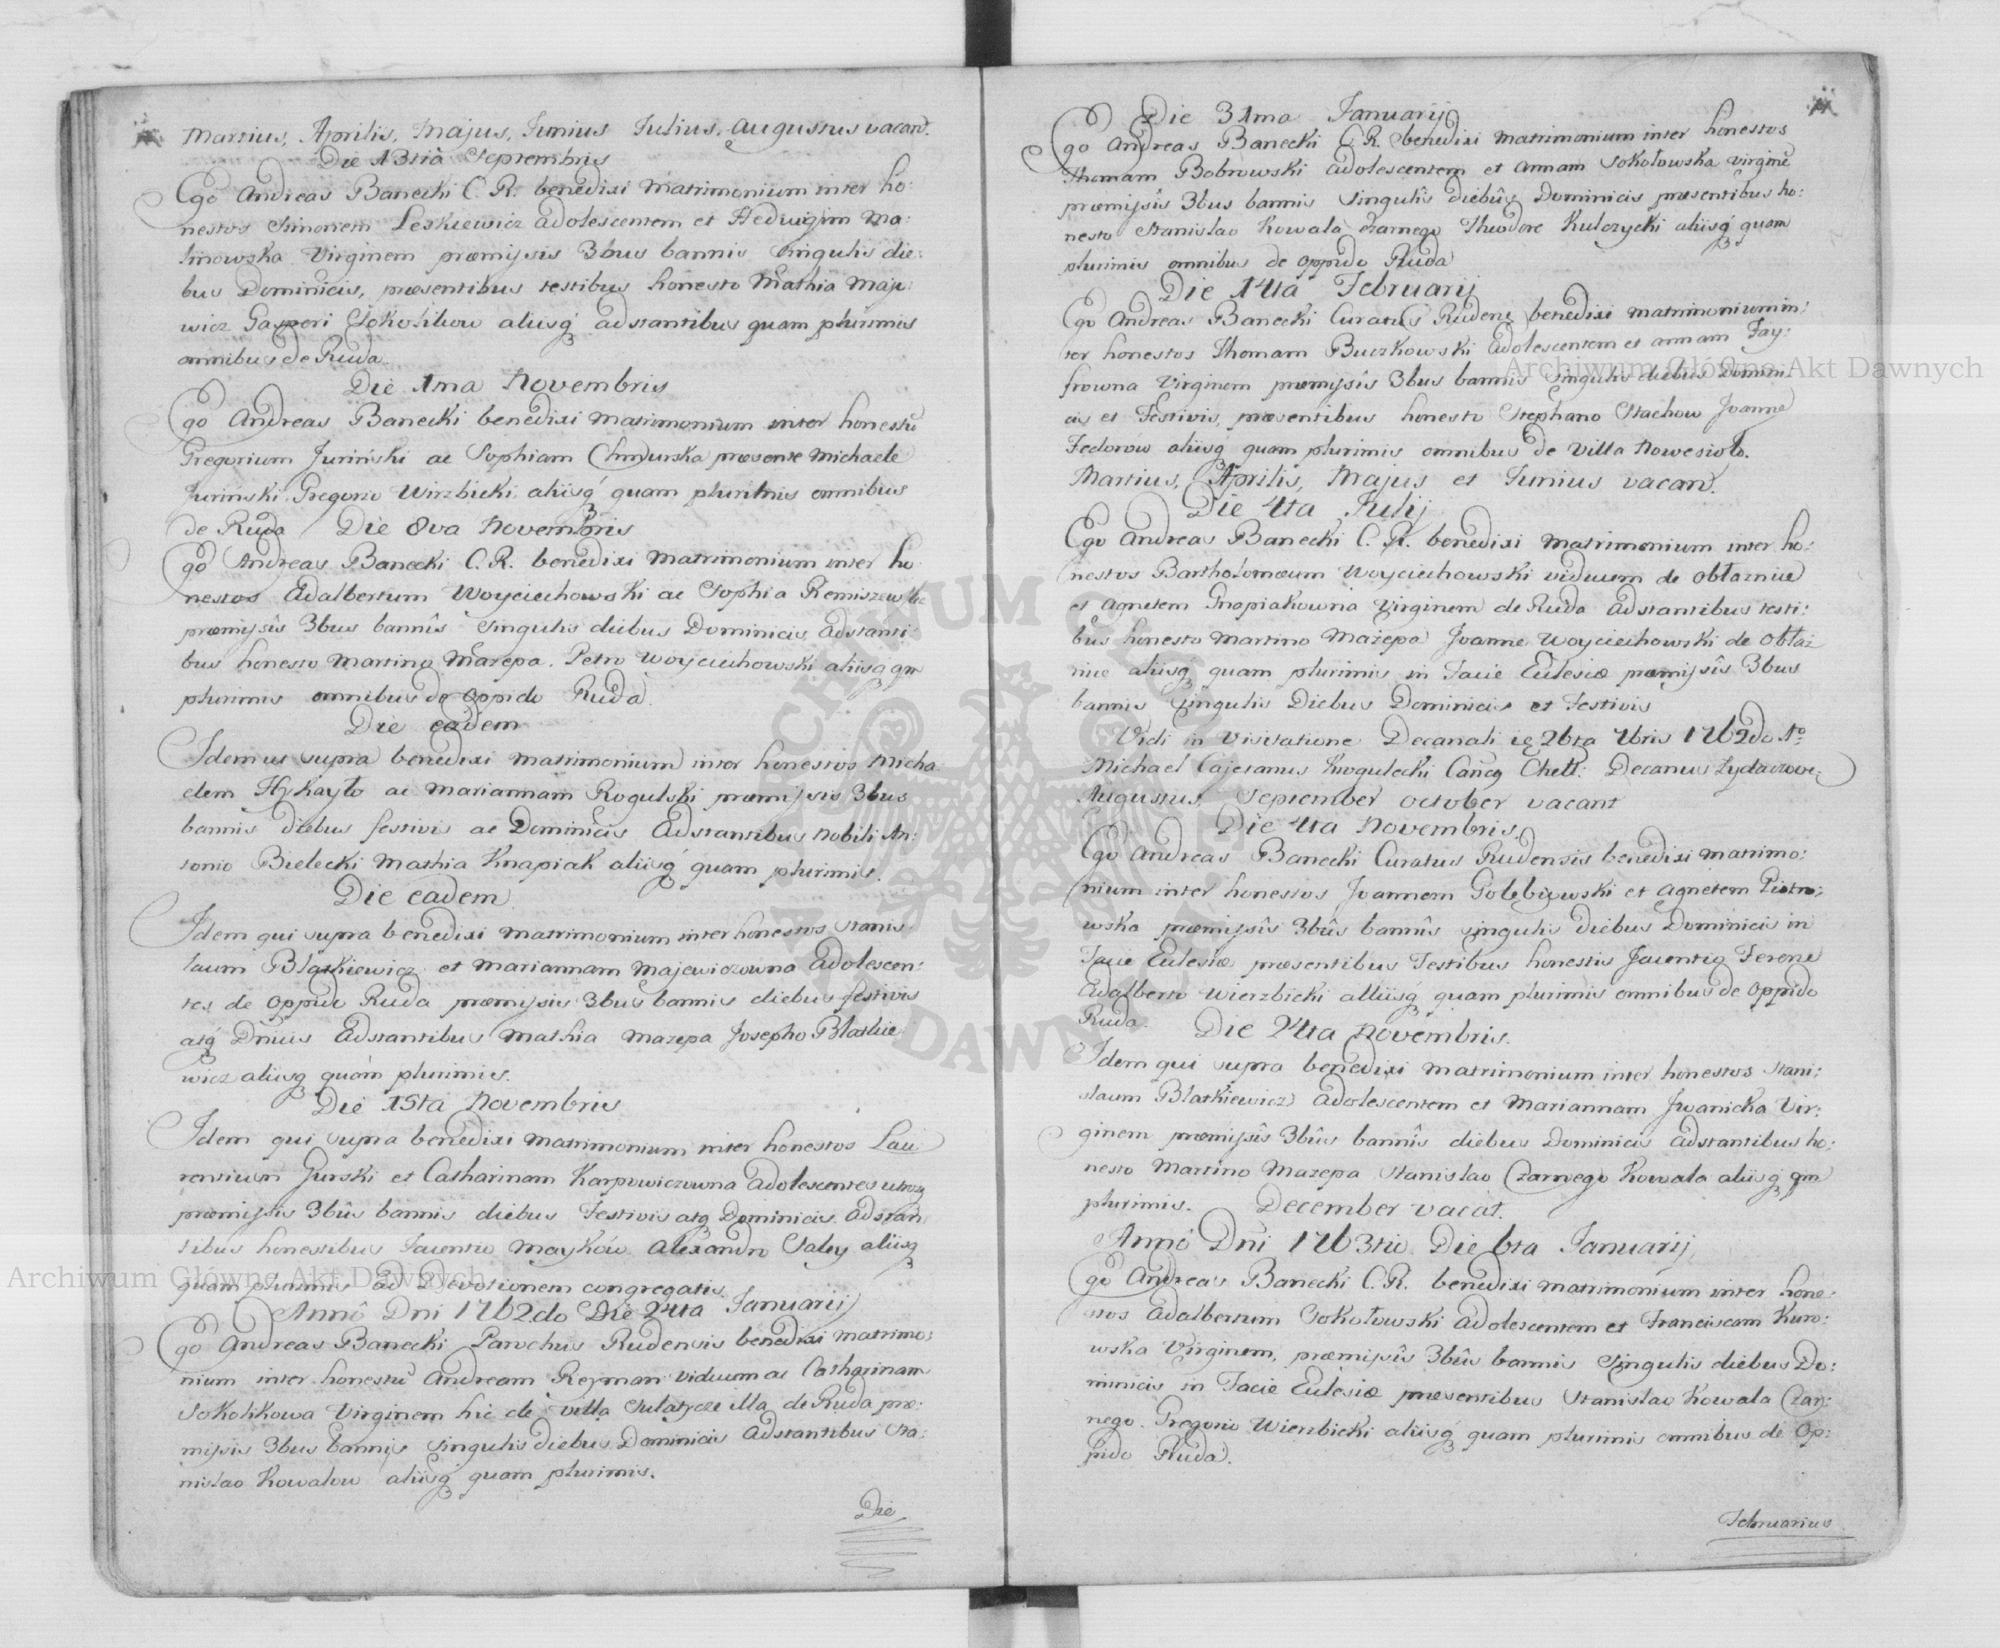 Martius, Aprilis, Majus, Junius Julius, Augustus vacant.
Die 13tia Septembris
Ego Andreas Banecki C. R. benedixi Matrimonium inter ho:
nestos Simonem Leskiewicz Adolescentem et Hedwigim Ma:
linowska Virginem præmissis 3bus bannis singulis die:
bus Dominicis, præsentibus testibus honesto Mathia Maje:
wicz Gasperi Sokolikow aliisq adstantibus quam plurimis
omnibus de Ruda.
Die 1ma Novembris
Ego Andreas Banecki benedixi Matrimonium inter honestũ
Gregorium Juriński ac Sophiam Chmurska præsente Michaele
Juriński Gregorio Wirzbicki aliisq quam plurimis omnibus
de Ruda Die 8va Novembris
Ego Andreas Banecki C. R. benedixi Matrimonium inter ho:
nestos Adalbertum Woyciechowski ac Sophia Remiszewska
præmissîs 3bus bannîs singulis diebus Dominicis, Adstanti:
bus honesto Martino Mazepa. Petro Woyciechowski aliisq qm
plurimis omnibus de oppido Ruda.
Die eadem
Idem ut supra benedixi matrimonium inter honestos Micha
elem Hykayło ac Mariannam Rogulski præmissis 3bus
bannis diebus festivis ac Dominicis Adstantibus Nobili An:
tonio Bielecki Mathia Knapiak aliisq quam plurimis.
Die eadem
Idem qui supra benedixi Matrimonium inter honestos Stanis
laum Blatkiewicz et Mariannam Majewiczowna Adolescen:
tes de oppido Ruda præmissis 3bus bannis diebus festivis
atq Dnicis Adstantibus Mathia Mazepa Josepho Blatkie
wicz aliisq quam plurimis.
Die 15ta Novembris
Idem qui supra benedixi Matrimonium inter honestos Lau
rentium Gurski et Catharinam Karpowiczowna Adolescentes utrosq
præmissis 3bûs bannis diebus Festivis atq Dominicis. Adstan
tibus honestibus Jacentio Mayków Alexandro Saley aliisq
quam plurimis ad Devotionem congregatis
Annô Dni 1762do Die 24ta Januarij
Ego Andreas Banecki Parochus Rudensis benedixi matrimo:
nium inter honestũ Andream Reyman viduum ac Catharinam
Sokolikowa Virginem hic de villa Sulatycze illa de Ruda præ:
missis 3bus bannis singulis diebus Dominicis Adstantibus Sta:
nislao Kowalow aliisq quam plurimis.
Die
Die 31ma Januarij
Ego Andreas Banecki C. R. benedixi matrimonium inter honestos
Thomam Bobrowski Adolescentem et Annam Sokołowska virginẽ
præmissîs 3bus bannis singulis diebûs Dominicis præsentibus ho:
nesto Stanislao Kowala czarnego Theodore Kulczycki aliisq quam
plurimis omnibus de oppido Ruda
Die 14ta Februarij
Ego Andreas Banecki Curatus Rudens benedixi matrimonium in:
ter honestos Thomam Buczkowski Adolescentem et annam Fay:
frowna Virginem præmissîs 3bus bannis singulis diebus Domini
cis et Festivis, præsentibus honesto Stephano Stachow Joanne
Fedorow aliisq quam plurimis omnibus de Villa Nowesioło.
Martius, Aprilis, Majus et Junius vacan.
Die 4ta Julij
Ego Andreas Banecki C. R. benedixi Matrimonium inter ho:
nestos Bartholomæum Woyciechowski viduum de Obłaznice
et Agnetem Gnapiakowna Virginem de Ruda Adstantibus testi:
bus honesto Martino Mazepa Joanne Woyciechowski de Obłaz
nice aliisq quam plurimis in Facie Eclesiæ præmissîs 3bus
bannis singulis Diebus Dominicis et Festivis
Vidi in Visitatione Decanali 7bris 1762do Ao
Michael Cajetanus Kwogulecki Canq Chelł: Decanus Zydaczovi:
Augustus, September october vacant
Die 4ta Novembris.
Ego Andreas Banecki Curatus Rudensis benedixi matrimo:
nium inter honestos Joannem Gołębiowski et Agnetem Piotro:
wska præmissîs 3bûs bannîs singulis diebus Dominicis in
Facie Eclesiæ præsentibus Testibus honestis Jacentio Ferene
Adalberto Wierzbicki alliisq quam plurimis omnibus de Oppido
Ruda. Die 24ta Novembris.
Idem qui supra benedixi matrimonium inter honestos Stani:
slaum Blatkiewicz Adolescentem et Mariannam Jwanicka Vir:
ginem præmissîs 3bûs bannîs diebus Dominicis Adstantibus ho:
nesto Martino Mazepa Stanislao Czarnego Kowala aliisq qm
plurimis. December vacat.
Annô Dni 1763tio Die 6ta Januarij
Ego Andreas Banecki C. R. benedixi matrimonium inter hone:
stos Adalbertum Sokołowski Adolescentem et Franciscam Kuro:
wska Virginem, præmissîs 3bûs bannis singulis diebus Do:
minicis in Facie Eclesiæ præsentibus Stanislao Kowala Czar:
nego. Gregorio Wierzbicki aliisq quam plurimis omnibus de Op:
pido Ruda.
Februarius
Archiwum Główne Akt Dawnych
Archiwum Główne Akt Dawnych